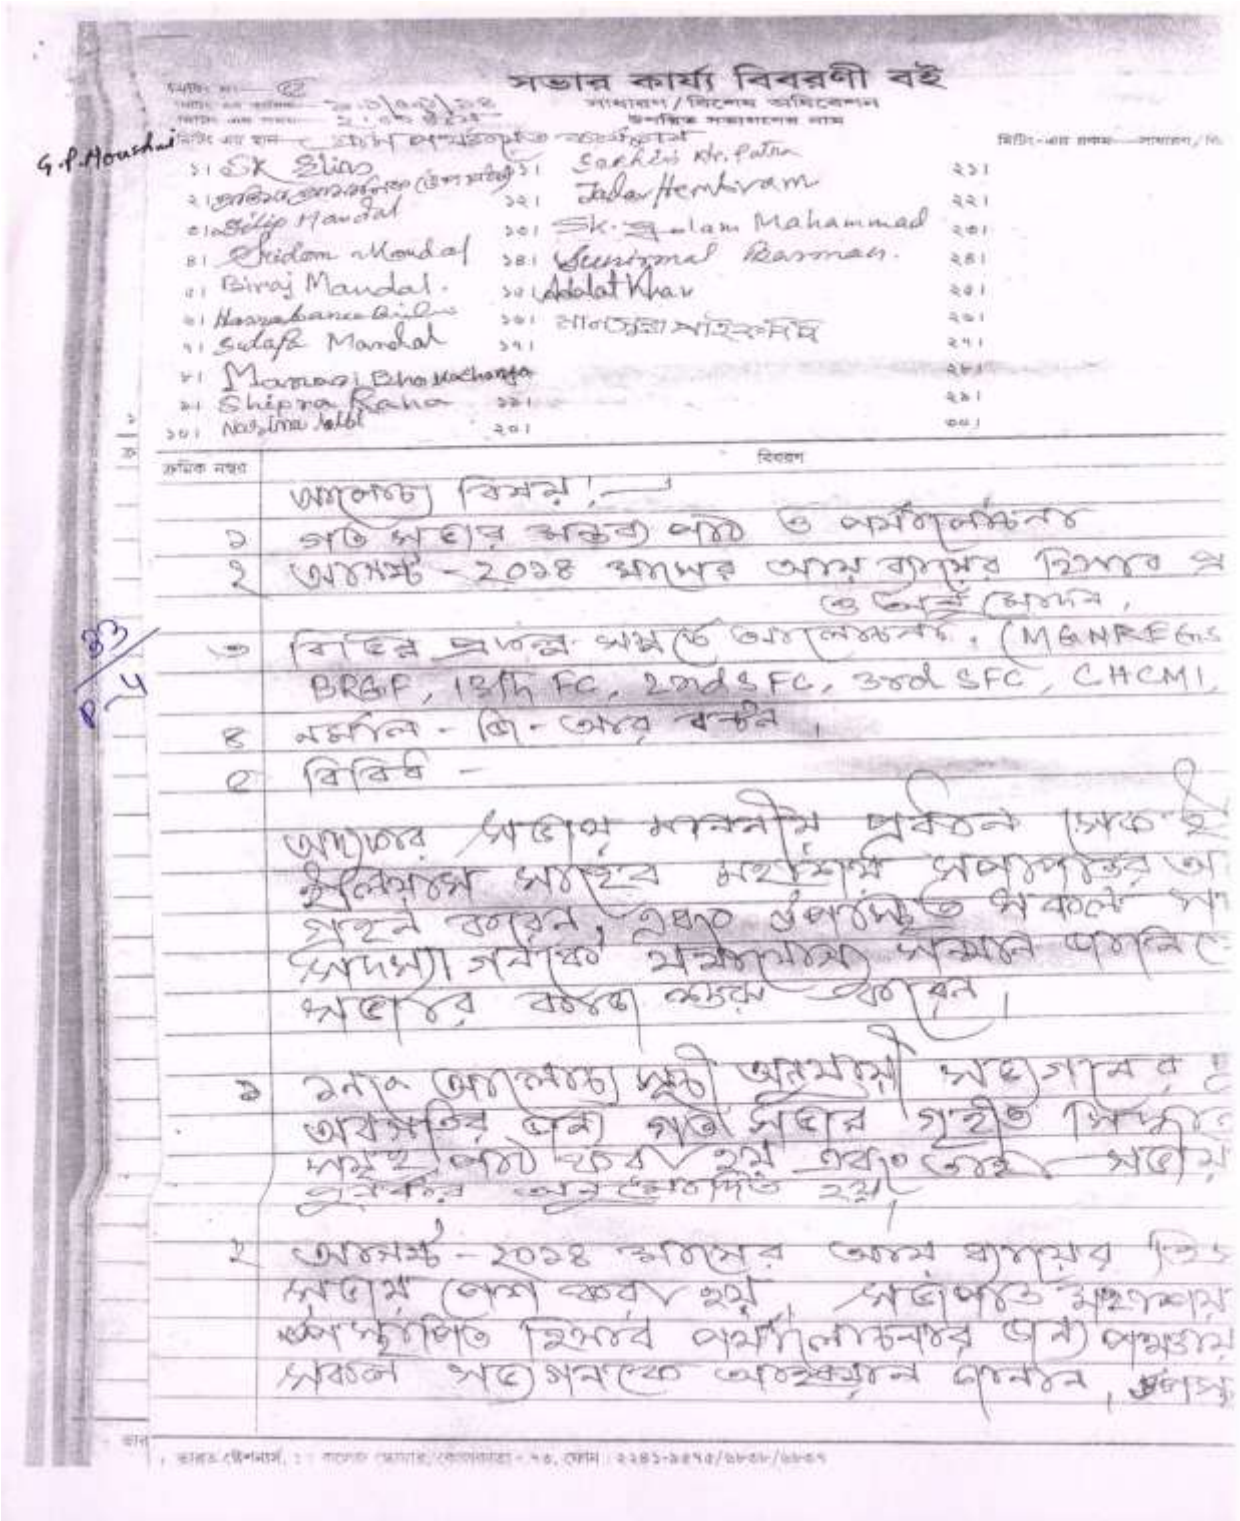 সভার কার্য্য বিবরণী বই
সাধারণ / বিশেষ অধিবেশন
উপস্থিত সভ্যগণের নাম
মিটিং নং
মিটিং এর স্থান গ্রাম পঞ্চায়েত কার্যালয়
মিটিং-এর প্রকার সাধারণ/বি
G.P. Houshui
১। SK Elias
২।
৩। Dilip Mandal
৪। Sridam Mondal
৫। Biraj Mandal.
৬।
৭। Sulafa Mandal
৮। Manasi Bhattacharya
৯। Shipra Rana
১০। Nasima bibi
Sachin Kr. Patra
১২। Jadav Hembram
১৩। SK. Golam Mahammad
১৪। Sunirmal Barman.
১৫। Adalat Khan
১৬।
১৭।
১৯।
২০।
২১।
২২।
২৩।
২৪।
২৫।
২৬।
২৭।
২৮।
২৯।
৩০।
ক্রমিক নম্বর
বিবরণ
আলোচ্য বিষয় :—
১ গত সভার মন্তব্য পাঠ ও পর্যালোচনা
২ আগষ্ট - ২০১৪ মাসের আয় ব্যয়ের হিসাব প্র
ও অনুমোদন,
৩ বিভিন্ন প্রকল্প সম্পর্কে আলোচনা, (MGNREGS
BRGF, 13th FC, 2nd SFC, 3rd SFC, CHCMI,
৪ নর্মাল - জি - আর বন্টন,
৫ বিবিধ -
33
P 4
অদ্যকার সভায় মাননীয় প্রধান সেক ই
ইলিয়াস সাহেব মহাশয় সভাপতির আ
গ্রহন করেন, এবং উপস্থিত সকল সদ
সদস্যা গনকে যথাযোগ্য সম্মান
সভার কাজ শুরু করেন।
১ ১নং আলোচ্য সূচী অনুযায়ী সভ্যগনের
অবগতির জন্য গত সভার গৃহীত সিদ্ধান্ত
সমূহ পাঠ করা হয় এবং তাহা সভায়
অনুমোদিত হয়।
২ আগষ্ট - ২০১৪ মাসের আয় ব্যয়ের হিস
সভায় পেশ করা হয়, সভাপতি মহাশয়
উপস্থাপিত হিসাব পর্যালোচনার জন্য পঞ্চায়
সকল সভ্যগনকে আহ্বান জানান, উপস্
ভারত ষ্টেশনার্স, কলেজ স্কোয়ার, কোলকাতা - ৭৩, ফোন : ২২৪১-